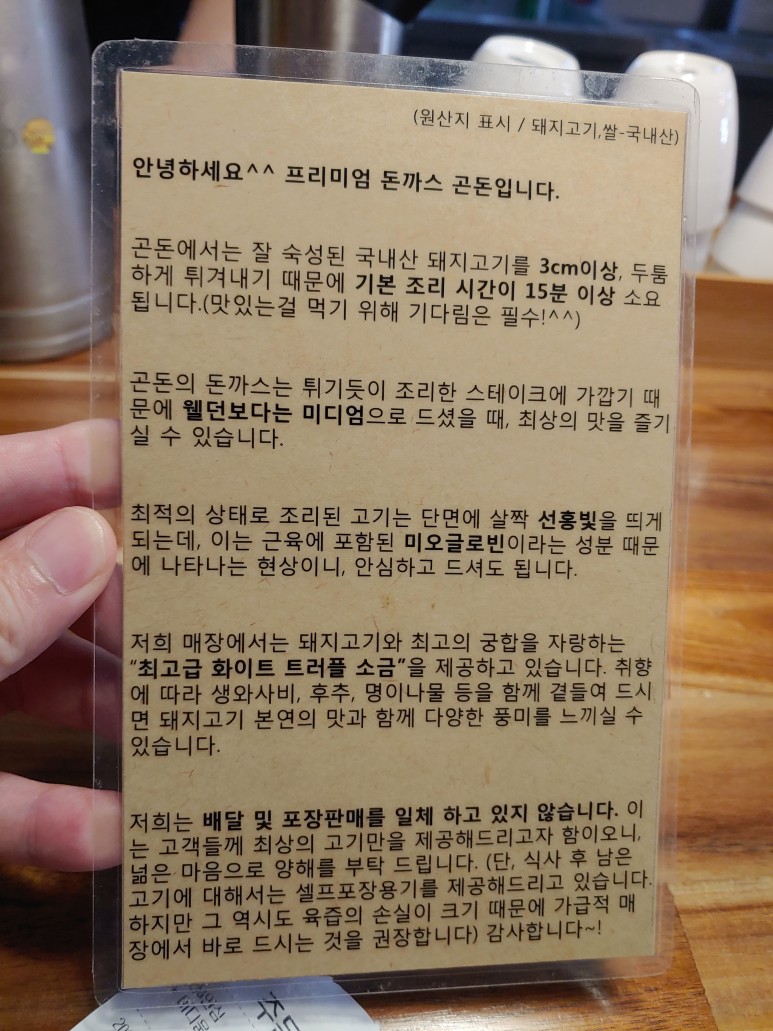 (원산지 표시 / 돼지고기,쌀-국내산)
안녕하세요^^ 프리미엄 돈까스 곤돈입니다.
곤돈에서는 잘 숙성된 국내산 돼지고기를 3cm이상, 두툼
하게 튀겨내기 때문에 기본 조리 시간이 15분 이상 소요
됩니다.(맛있는걸 먹기 위해 기다림은 필수!^^)
곤돈의 돈까스는 튀기듯이 조리한 스테이크에 가깝기 때
문에 웰던보다는 미디엄으로 드셨을 때, 최상의 맛을 즐기
실 수 있습니다.
최적의 상태로 조리된 고기는 단면에 살짝 선홍빛을 띄게
되는데, 이는 근육에 포함된 미오글로빈이라는 성분 때문
에 나타나는 현상이니, 안심하고 드셔도 됩니다.
저희 매장에서는 돼지고기와 최고의 궁합을 자랑하는
“최고급 화이트 트러플 소금”을 제공하고 있습니다. 취향
에 따라 생와사비, 후추, 명이나물 등을 함께 곁들여 드시
면 돼지고기 본연의 맛과 함께 다양한 풍미를 느끼실 수
있습니다.
저희는 배달 및 포장판매를 일체 하고 있지 않습니다. 이
는 고객들께 최상의 고기만을 제공해드리고자 함이오니,
넒은 마음으로 양해를 부탁 드립니다. (단, 식사 후 남은
고기에 대해서는 셀프포장용기를 제공해드리고 있습니다.
하지만 그 역시도 육즙의 손실이 크기 때문에 가급적 매
장에서 바로 드시는 것을 권장합니다) 감사합니다~!